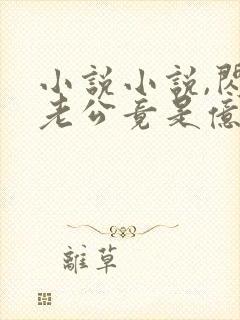 小說小說,閃
老公竟是億
離草